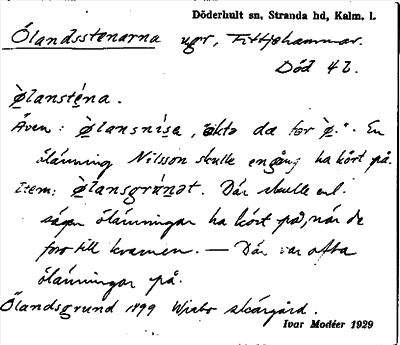 Döderhult sn, Stranda hd, Kalm. l.
Ölandsstenarna ugr, Fittjehammar.
Död 4 b.
Ølansténa.
Även: Ølansnísa, "åkte då for ø." En
ölänning Nilsson skulle engång ha kört på.
Item: Ølansgrúnet. Där skulle enl.
sägn ölänningar ha kört på, när de
foro till kramen. — Där var ofta
ölänningar på.
Ölandsgrund 1899 Virbo skärgård.
Ivar Modéer 1929